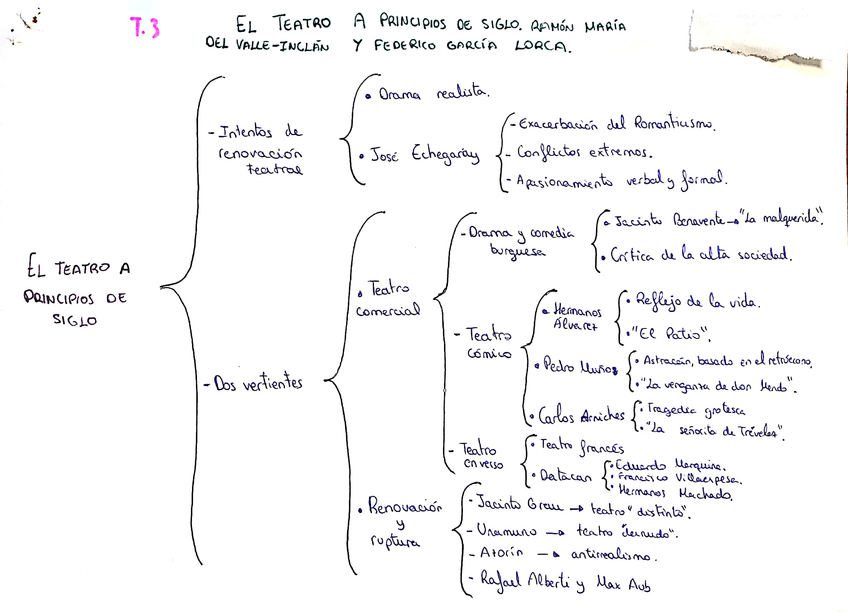 T.3
EL TEATRO A PRINCIPIOS DE SIGLO. RAMÓN MARÍA
DEL VALLE-INCLÁN Y FEDERICO GARCÍA LORCA.
EL TEATRO A
PRINCIPIOS DE
SIGLO
- Intentos de
renovación
teatral
• Drama realista.
• José Echegaray
- Exacerbación del Romanticismo.
- Conflictos extremos.
- Apasionamiento verbal y formal.
- Dos vertientes
• Teatro
comercial
- Drama y comedia
burguesa
• Jacinto Benavente → "La malquerida".
• Crítica de la alta sociedad.
- Teatro
cómico
• Hermanos
Álvarez
• Reflejo de la vida.
• "El Patio".
• Pedro Muñoz
• Astracán, basado en el retruécano.
• "La venganza de don Mendo".
• Carlos Arniches
• Tragedia grotesca
• "La señorita de Trévelez".
- Teatro
en verso
• Teatro francés
• Destacan
• Eduardo Marquina.
• Francisco Villaespesa.
• Hermanos Machado.
• Renovación
y
ruptura
- Jacinto Grau → teatro "distinto".
- Unamuno → teatro "desnudo".
- Azorín → antirrealismo.
- Rafael Alberti y Max Aub